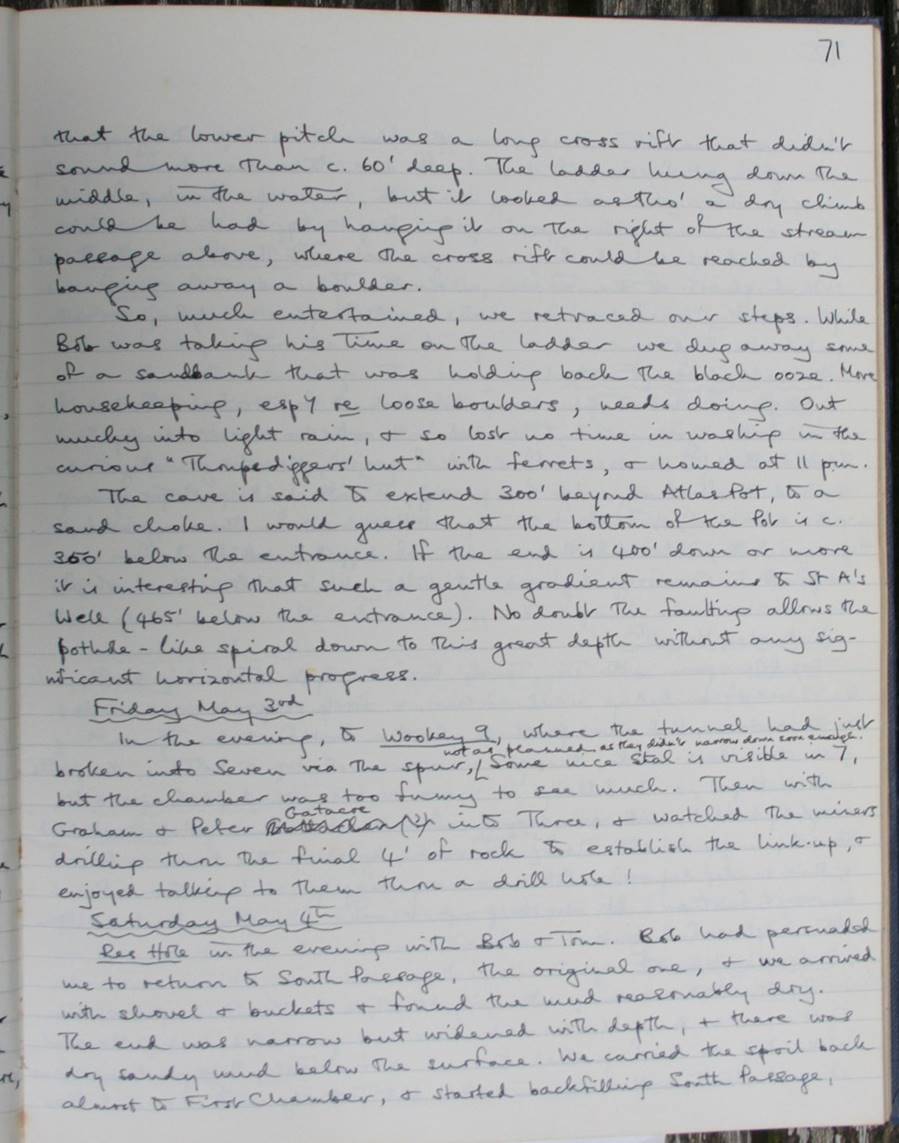 71
that the lower pitch was a long cross rift that didn't
sound more than c. 60' deep. The ladder hung down the
middle, in the water, but it looked as tho' a dry climb
could be had by hanging it on the right of the stream
passage above, where the cross rift could be reached by
banging away a boulder.
So, much entertained, we retraced our steps. While
Bob was taking his time on the ladder we dug away some
of a sandbank that was holding back the black ooze. More
housekeeping, esp'y re loose boulders, needs doing. Out
mucky into light rain, & so lost no time in washing in the
curious "Thrupediggers' hut" with ferrets, & homed at 11 p.m.
The cave is said to extend 300' beyond Atlas Pot, to a
sand choke. I would guess that the bottom of the Pot is c.
350' below the entrance. If the end is 400' down or more
it is interesting that such a gentle gradient remains to St A's
Well (465' below the entrance). No doubt the faulting allows the
pothole-like spiral down to this great depth without any sig-
nificant horizontal progress.
Friday May 3rd
In the evening, to Wookey 9, where the tunnel had just
not as planned as they didn't narrow down soon enough.
broken into Seven via the spur, Some nice stal is visible in 7,
but the chamber was too fumy to see much. Then with
Gatacre
Graham & Peter (?) into Three, & watched the miners
drilling thru the final 4' of rock to establish the link-up, &
enjoyed talking to them thru a drill hole!
Saturday May 4th
Res Hole in the evening with Bob & Tom. Bob had persuaded
me to return to South Passage, the original one, & we arrived
with shovel & buckets & found the mud reasonably dry.
The end was narrow but widened with depth, & there was
dry sandy mud below the surface. We carried the spoil back
almost to First Chamber, & started backfilling South Passage,